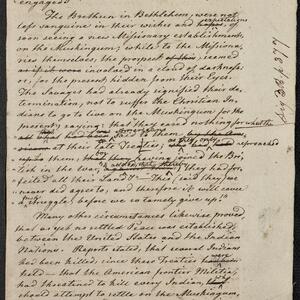 engaged.
The Brethren in Bethlehem, were per-
less sanguine in their wishes and expectations of
soon seeing a new Missionary establishment
on the Muskingum; while to the Missiona-
ries themselves, the prospect seemed
involved in a cloud of darkness,
or, for the present, hidden from their Eyes.
The Savages had already signified their de-
termination, not to suffer the Christian In-
dians to go to live on the Muskingum for the
present; saying, that they cared nothing for what the
had done
at their late Treaties; reproached
them, having joined the Bri-
tish in the war, they had for-
feited all their Land!—"This, said they, we
never did agree to, and therefore it will cause
a struggle before we so tamely give up!"
Many other circumstances likewise proved,
that as yet no settled Peace was established
between the United States and the Indian
Nations. Reports stated, several Indians
had been killed, since these Treaties were
held—that the American frontier Militia,
had threatened to kill every Indian, who
should attempt to settle on the Muskingum,